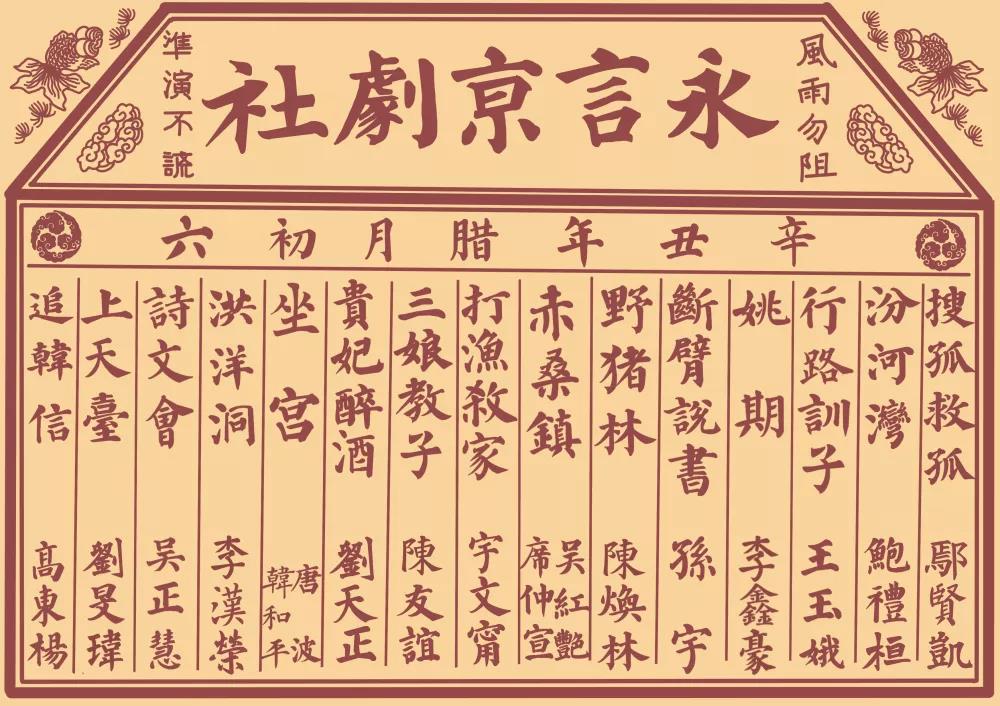 風雨勿阻
永言亰劇社
準演不
辛丑年腊月初六
搜孤救孤 鄢賢凱
汾河灣 鮑禮桓
行路訓子 王玉娥
姚期 李鑫豪
斷臂說書 孫宇
野猪林 陳煥林
赤桑鎮 吴紅艷 席仲宣
打漁殺家 宇文甯
三娘教子 陳友誼
貴妃醉酒 劉天正
坐宫 唐波 韓和平
洪洋洞 李漢榮
詩文會 吴正慧
上天臺 劉旻瑋
追韓信 髙東楊